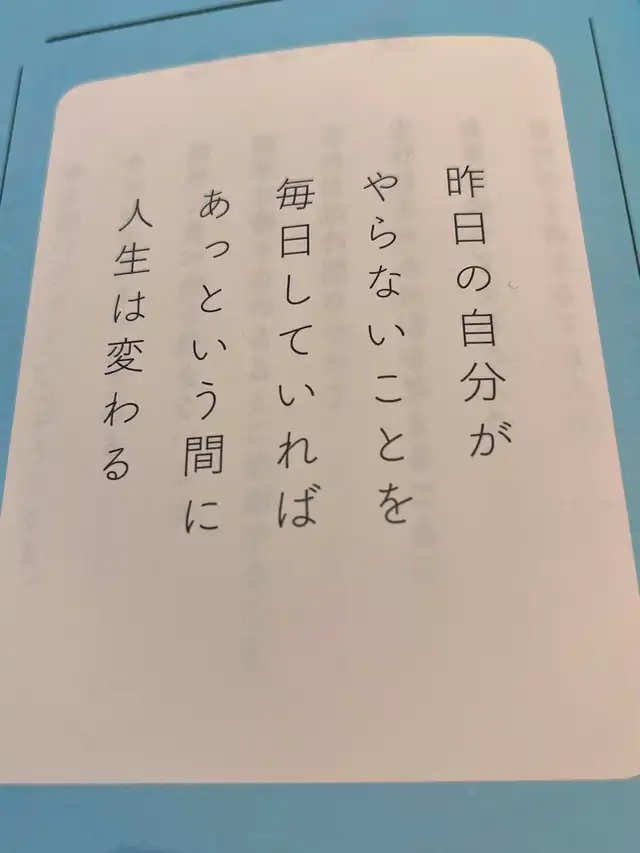 昨日の自分が
やらないことを
毎日していれば
あっという間に
人生は変わる